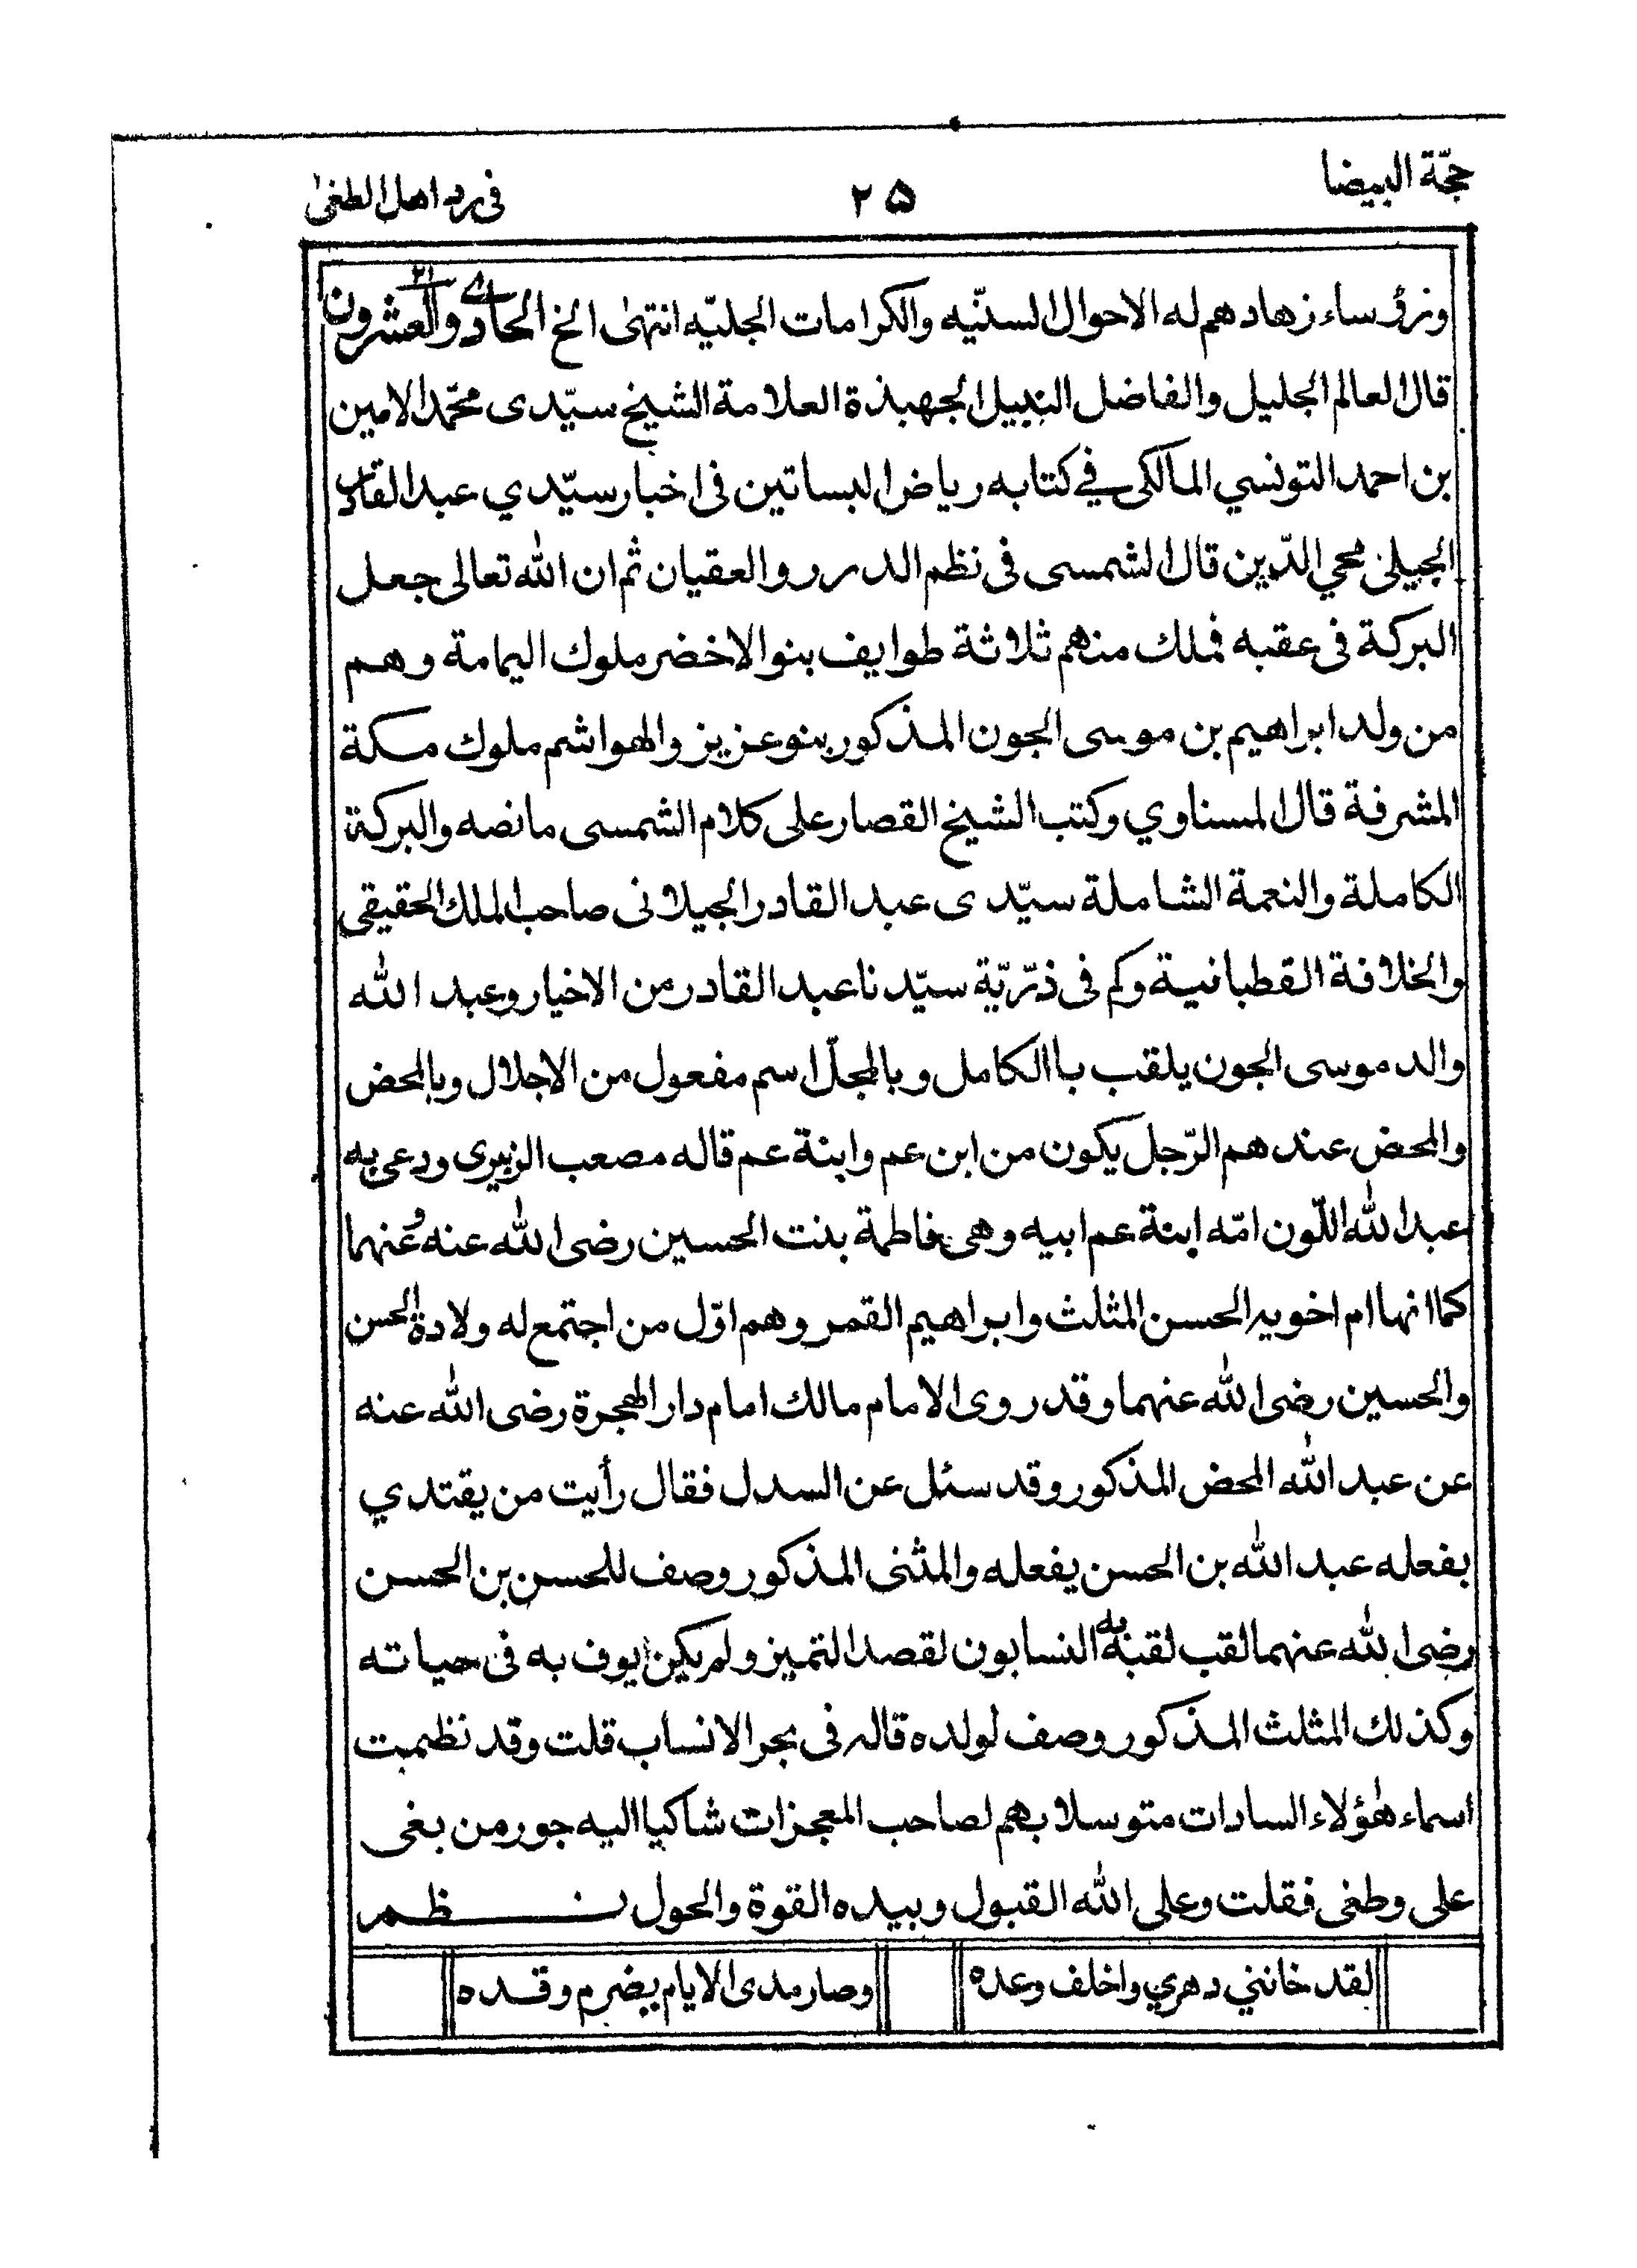 حجّة البيضا
٢٥
فى رد اهل الطغىٰ
ورؤساء زهادهم له الاحوال السنّيه والكرامات الجليّه انتهىٰ الخ الحادے والعشرون ٢١
قال العالم الجليل والفاضل النبيل الجهبذة العلامة الشيخ سيّدى محمّد الامين
بن احمد التونسي المالكى فے كتابه رياض البساتين فى اخبار سيّدي عبد القادر
الجيلى محي الدّين قال الشمسى فى نظم الدرر والعقيان ثم ان الله تعالى جعل
البركة فى عقبه فملك منهم ثلاثة طوايف بنو الاخضر ملوك اليمامة وهم
من ولد ابراهيم بن موسى الجون المذكور بنو عزيز والهواشم ملوك مكة
المشرفة قال المسناوي وكتب الشيخ القصار على كلام الشمسى مانصه والبركة
الكاملة والنعمة الشاملة سيّدى عبد القادر الجيلانى صاحب الملك الحقيقى
والخلافة القطبانية وكم فى ذرّيّة سيّدنا عبد القادر من الاخيار وعبد الله
والد موسى الجون يلقب باالكامل وبالمجلّ اسم مفعول من الاجلال وبالمحض
والمحض عندهم الرّجل يكون من ابن عم وابنة عم قاله مصعب الزبيرى ودعى به
عبد الله اللّون امّه ابنة عم ابيه وهى فاطمة بنت الحسين رضى الله عنه وعنهما
كما انها ام اخويه الحسن المثلث وابراهيم القمر وهم اوّل من اجتمع له ولادة الحسن
والحسين رضى الله عنهما وقد روى الامام مالك امام دار الهجرة رضى الله عنه
عن عبد الله المحض المذكور وقد سئل عن السدل فقال رأيت من يقتدي
بفعله عبد الله بن الحسن يفعله والمثنى المذكور وصف للحسن بن الحسن
رضى الله عنهما لقب لقبه به النسابون لقصد التميز ولم يكن يوف به فى حياته
وكذلك المثلث المذكور وصف لولده قاله فى بحر الانساب قلت وقد نظمت
اسماء هٰؤلاء السادات متوسلا بهم لصاحب المعجزات شاكيا اليه جور من بغى
على وطغى فقلت وعلى الله القبول وبيده القوة والحول نــظم
لقد خانني دهري واخلف وعده
وصار مدى الايام يضرم وقده